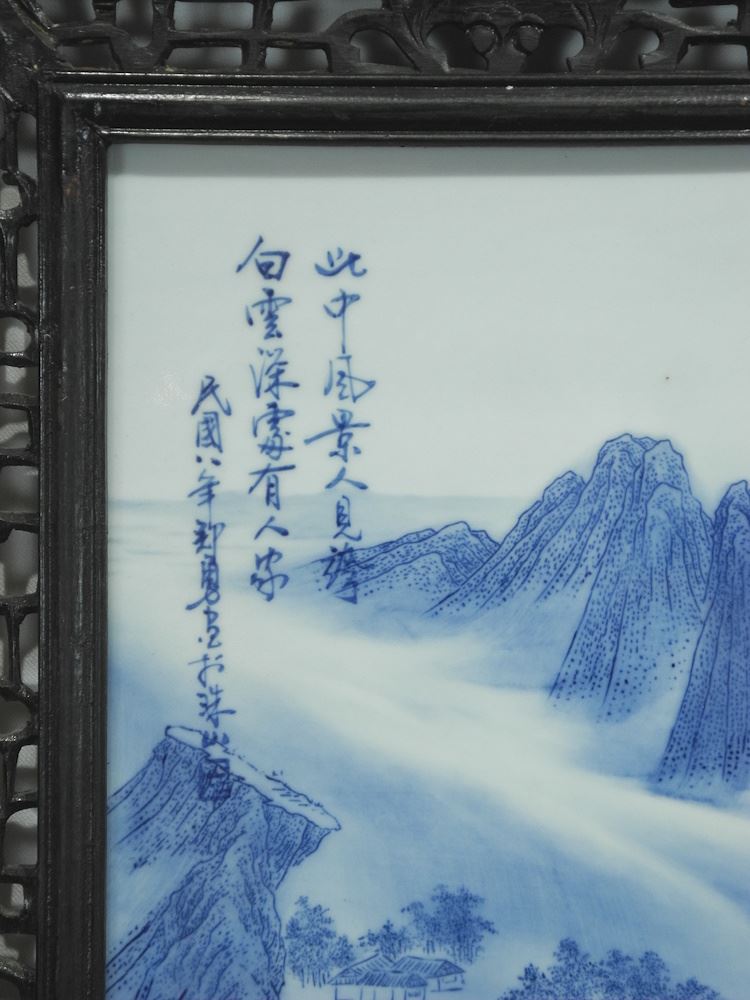 此中風景人見誇
白雲深處有人家
民國八年鄒勇畫於珠山